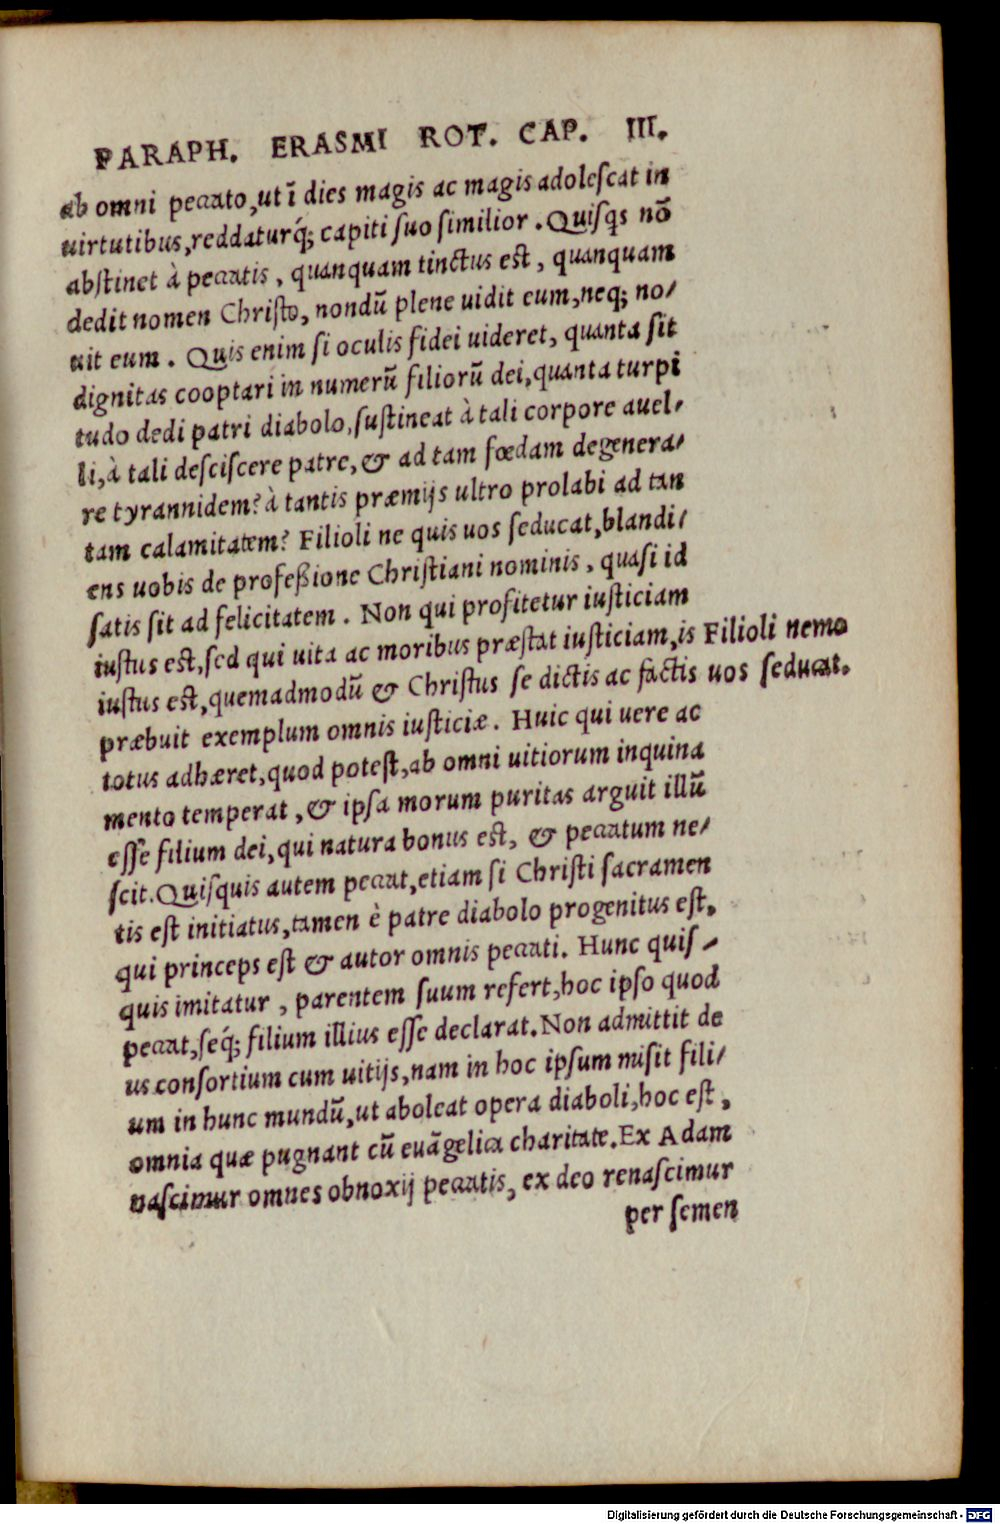 PARAPH. ERASMI ROT. CAP. III.
ab omni peccato, ut ī dies magis ac magis adolescat in
uirtutibus, reddaturq́; capiti suo similior. Quisqs nō
abstinet à peccatis, quanquam tinctus est, quanquam
dedit nomen Christo, nondū plene uidit eum, neq; no/
uit eum. Quis enim si oculis fidei uideret, quanta sit
dignitas cooptari in numerū filiorū dei, quanta turpi
tudo dedi patri diabolo, sustineat à tali corpore auel/
li, à tali desciscere patre, & ad tam fœdam degenera/
re tyrannidem? à tantis præmijs ultro prolabi ad tan
tam calamitatem? Filioli ne quis uos seducat, blandi/
ens uobis de profeßione Christiani nominis, quasi id
satis sit ad felicitatem. Non qui profitetur iusticiam
iustus est, sed qui uita ac moribus præstat iusticiam, is
iustus est, quemadmodū & Christus se dictis ac factis
præbuit exemplum omnis iusticiæ. Huic qui uere ac
totus adhæret, quod potest, ab omni uitiorum inquina
mento temperat, & ipsa morum puritas arguit illū
esse filium dei, qui natura bonus est, & peccatum ne/
scit. Quisquis autem peccat, etiam si Christi sacramen
tis est initiatus, tamen è patre diabolo progenitus est,
qui princeps est & autor omnis peccati. Hunc quis/
quis imitatur, parentem suum refert, hoc ipso quod
peccat, seq́; filium illius esse declarat. Non admittit de
us consortium cum uitijs, nam in hoc ipsum misit fili/
um in hunc mundū, ut aboleat opera diaboli, hoc est,
omnia quæ pugnant cū euāgelica charitate. Ex Adam
nascimur omnes obnoxij peccatis, ex deo renascimur
per semen
Filioli nemo
uos seducat.
Digitalisierung gefördert durch die Deutsche Forschungsgemeinschaft - DFG